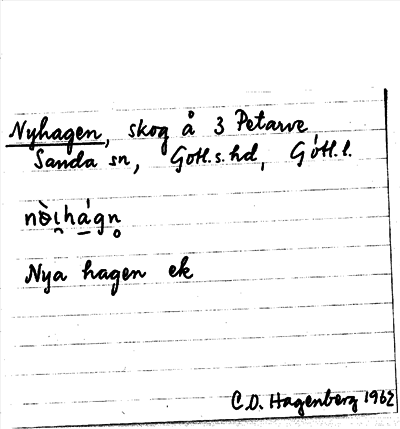 Nyhagen, skog å 3 Petarve
Sanda sn, Gotl. s. hd, Gotl. l.
nö̀i̯há̱gn̥
Nya hagen ek
C.O. Hagenberg 1962